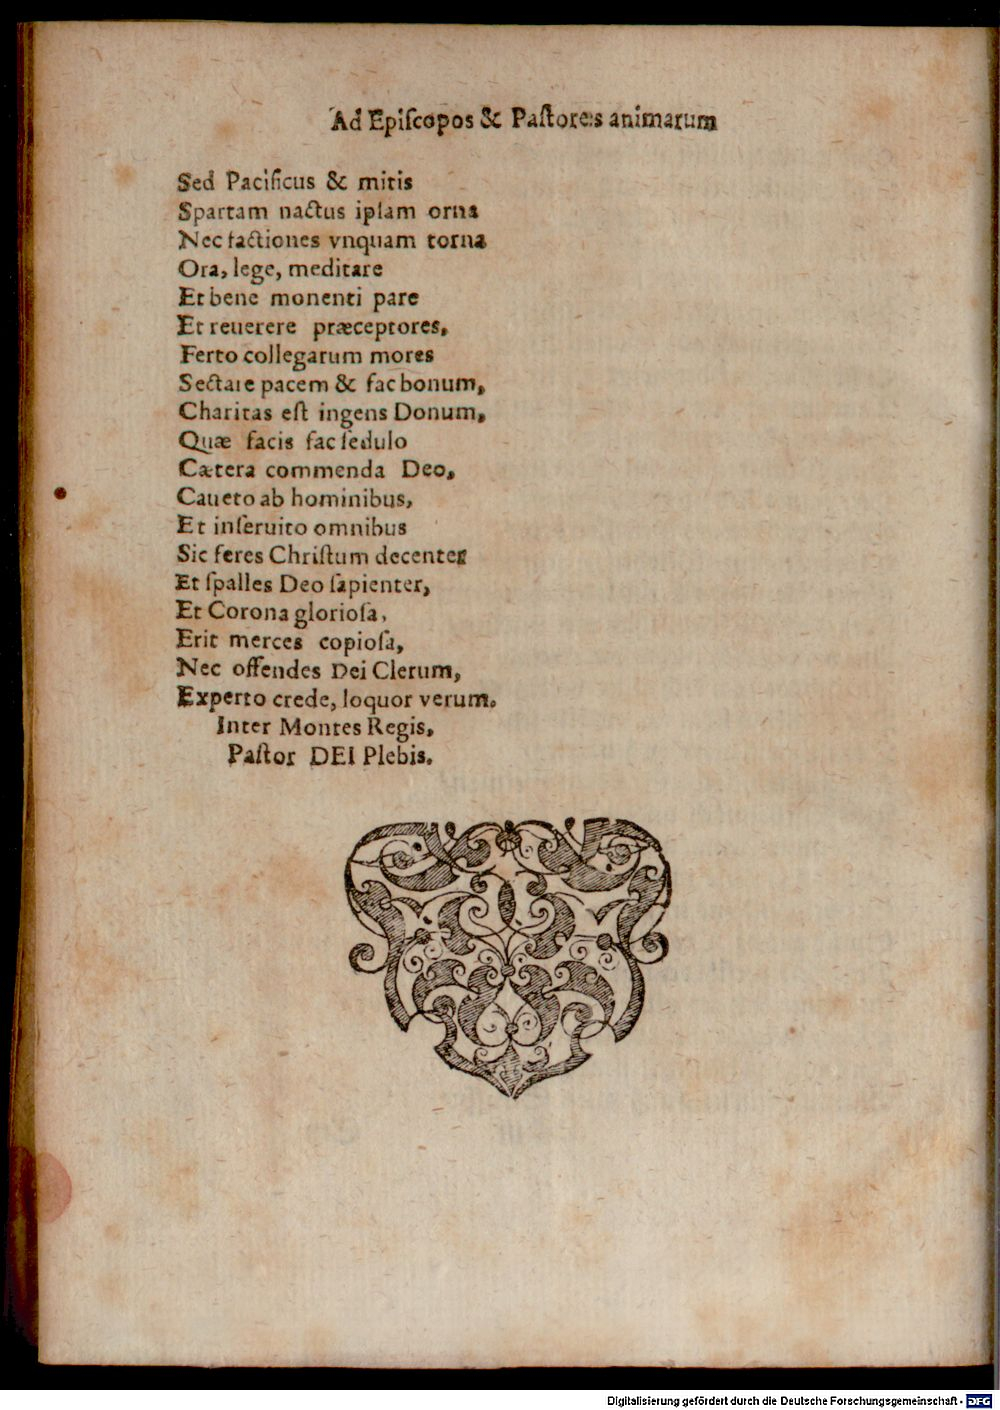 Ad Epiſcopos & Paſtores animarum
Sed Pacificus & mitis
Spartam nactus ipſam orna
Nec factiones vnquam torna
Ora, lege, meditare
Et bene monenti pare
Et reuerere præceptores,
Ferto collegarum mores
Sectare pacem & fac bonum,
Charitas eſt ingens Donum,
Quæ facis fac ſedulo
Cætera commenda Deo,
Caueto ab hominibus,
Et inſeruito omnibus
Sic feres Chriſtum decenter
Et ſpalles Deo ſapienter,
Et Corona glorioſa,
Erit merces copioſa,
Nec offendes Dei Clerum,
Experto crede, loquor verum.
Inter Montes Regis,
Paſtor DEI Plebis.
Digitalisierung gefördert durch die Deutsche Forschungsgemeinschaft - DFG